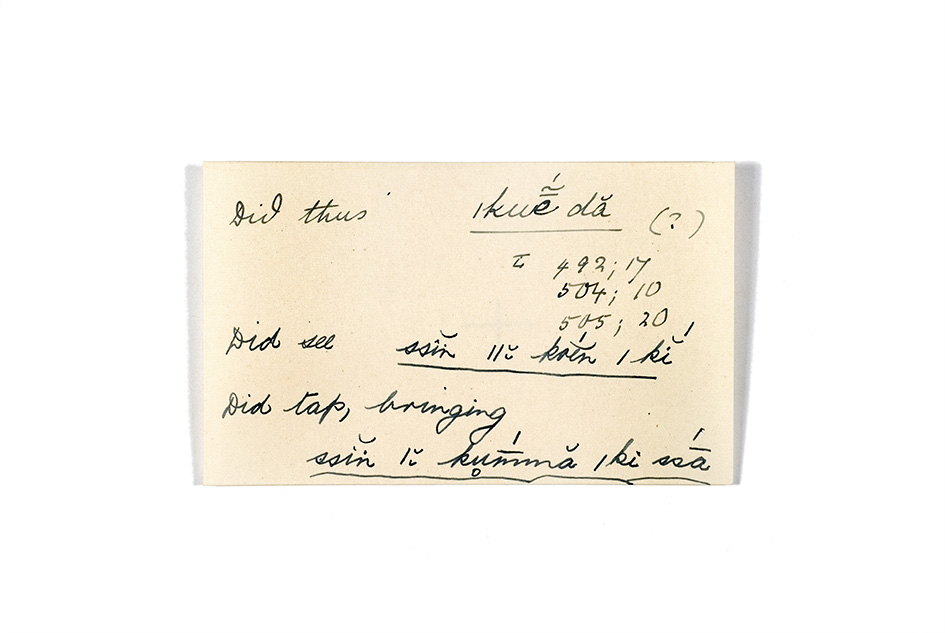 Did thus ǀkuḗ̃ dă (?)
I 492; 17
504; 10
505; 20
Did see ssĭn ǁĭ kŏĕ́n ǀkĭ́
Did tap, bringing
ssĭn ǀĭ kụḿ̄mā̆ ǀki ssā́